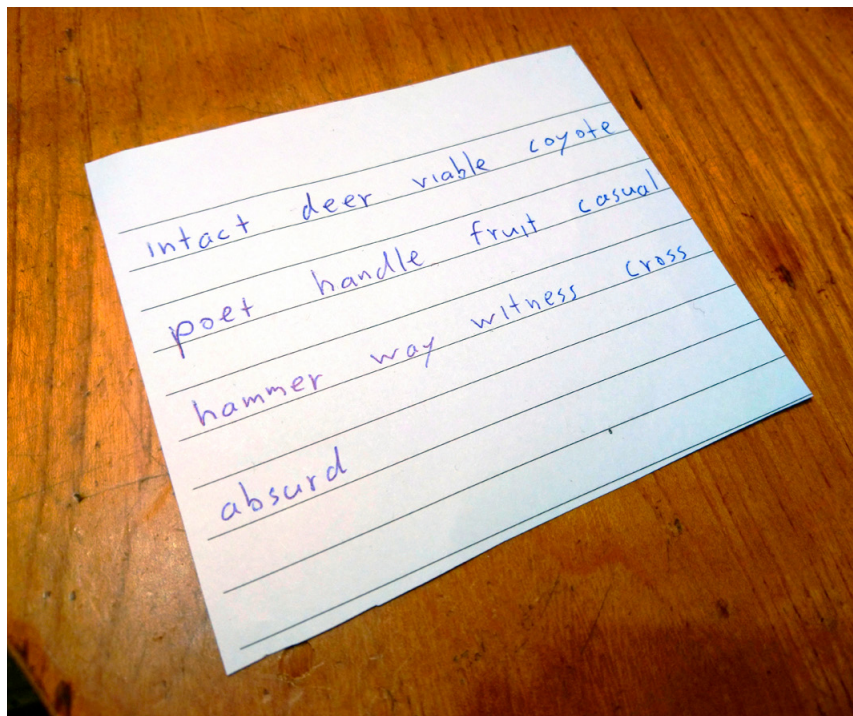 intact deer viable coyote
poet handle fruit casual
hammer way witness cross
absurd